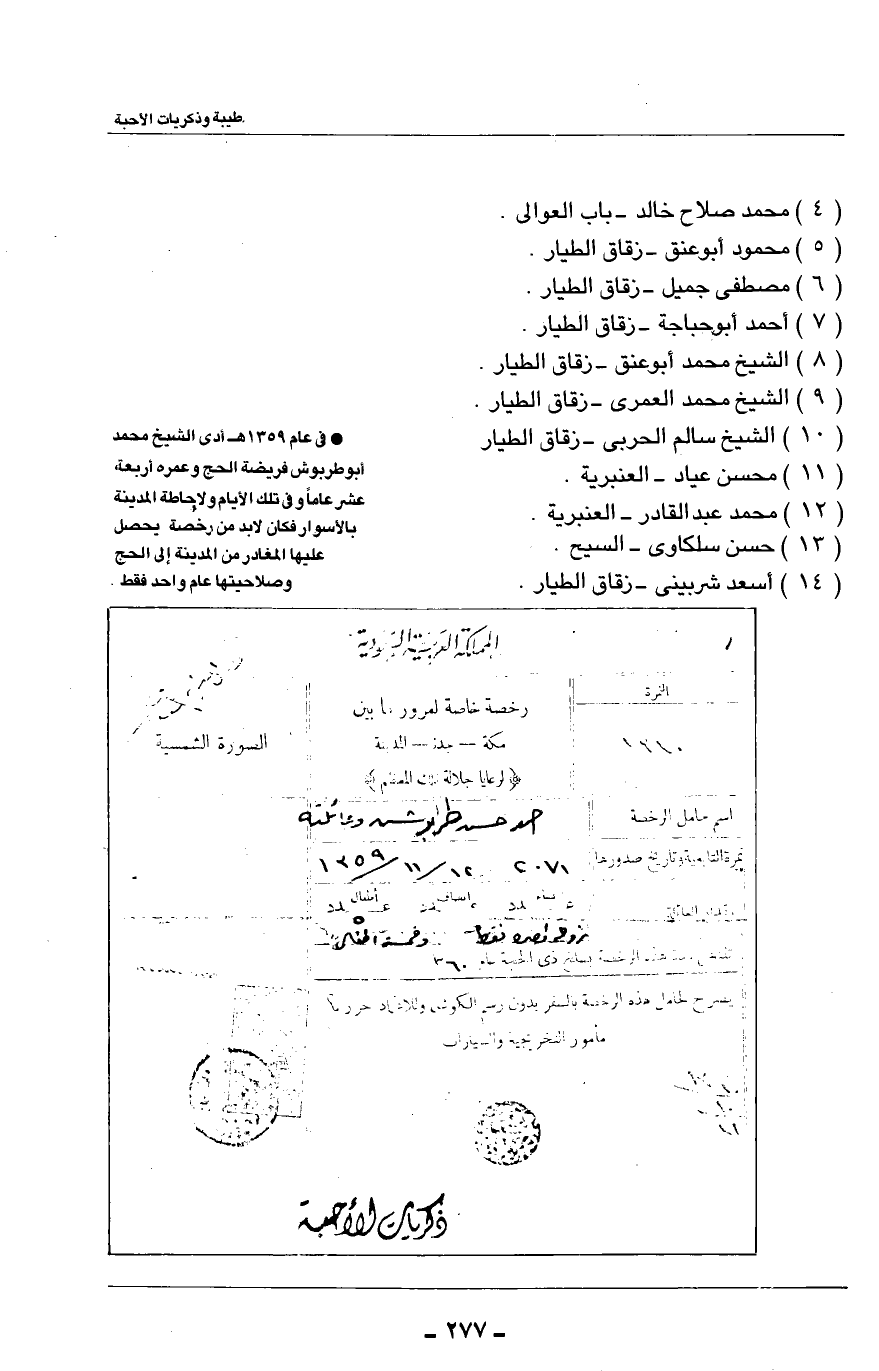 طيبة وذكريات الأحبة
( ٤ ) محمد صلاح خالد - باب العوالى .
( ٥ ) محمود أبوعنق - زقاق الطيار .
( ٦ ) مصطفى جميل - زقاق الطيار .
( ٧ ) أحمد أبوحباجة - زقاق الطيار .
( ٨ ) الشيخ محمد أبوعنق - زقاق الطيار .
( ٩ ) الشيخ محمد العمرى - زقاق الطيار .
( ١٠ ) الشيخ سالم الحربى - زقاق الطيار
( ١١ ) محسن عياد - العنبرية .
( ١٢ ) محمد عبدالقادر - العنبرية .
( ١٣ ) حسن سلكاوى - السيح .
( ١٤ ) أسعد شربينى - زقاق الطيار .
● فى عام ١٣٥٩هـ أدى الشيخ محمد
أبوطربوش فريضة الحج وعمره أربعة
عشر عاماً وفى تلك الأيام ولإحاطة المدينة
بالأسوار فكان لابد من رخصة يحصل
عليها المغادر من المدينة إلى الحج
وصلاحيتها عام واحد فقط .
المملكة العربية السعودية
النمرة
رخصة خاصة لمرور ما بين
مكة - جدة - المدينة
الصورة الشمسية
﴿ لرعايا جلالة الملك المعظم ﴾
اسم حامل الرخصة
حسن طرابوش وعائلته
نمرة التابعية وتاريخ صدورها
٢٠٧١ ١٢/ ١١/ ١٣٥٩
أطفال
عدد
فقط
وخمسة أطفال
هذه الرخصة ذى الحجة ٣٦٠
يصرح لحامل هذه الرخصة بالسفر بدون رسم الكوشان
مأمور والسيارات
ذكريات الأحبة
- ٢٧٧ -